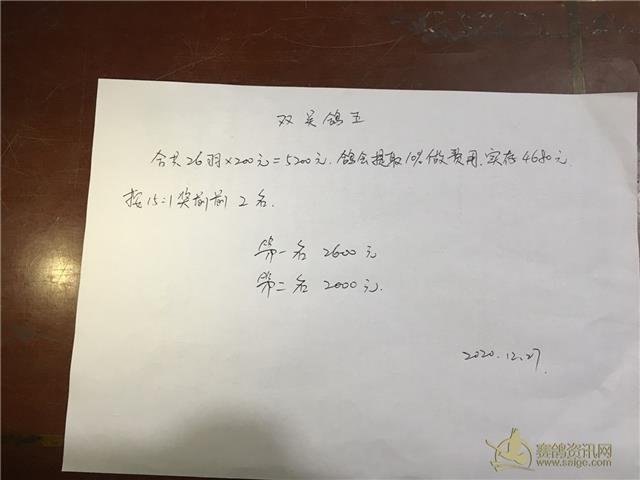 双关鸽王
合共26羽×200元=5200元.鸽会提取10%做费用.实存4680元.
按15:1奖励前2名.
第一名 2600元
第二名 2000元.
2020.12.27.
赛鸽资讯网
www.saige.com